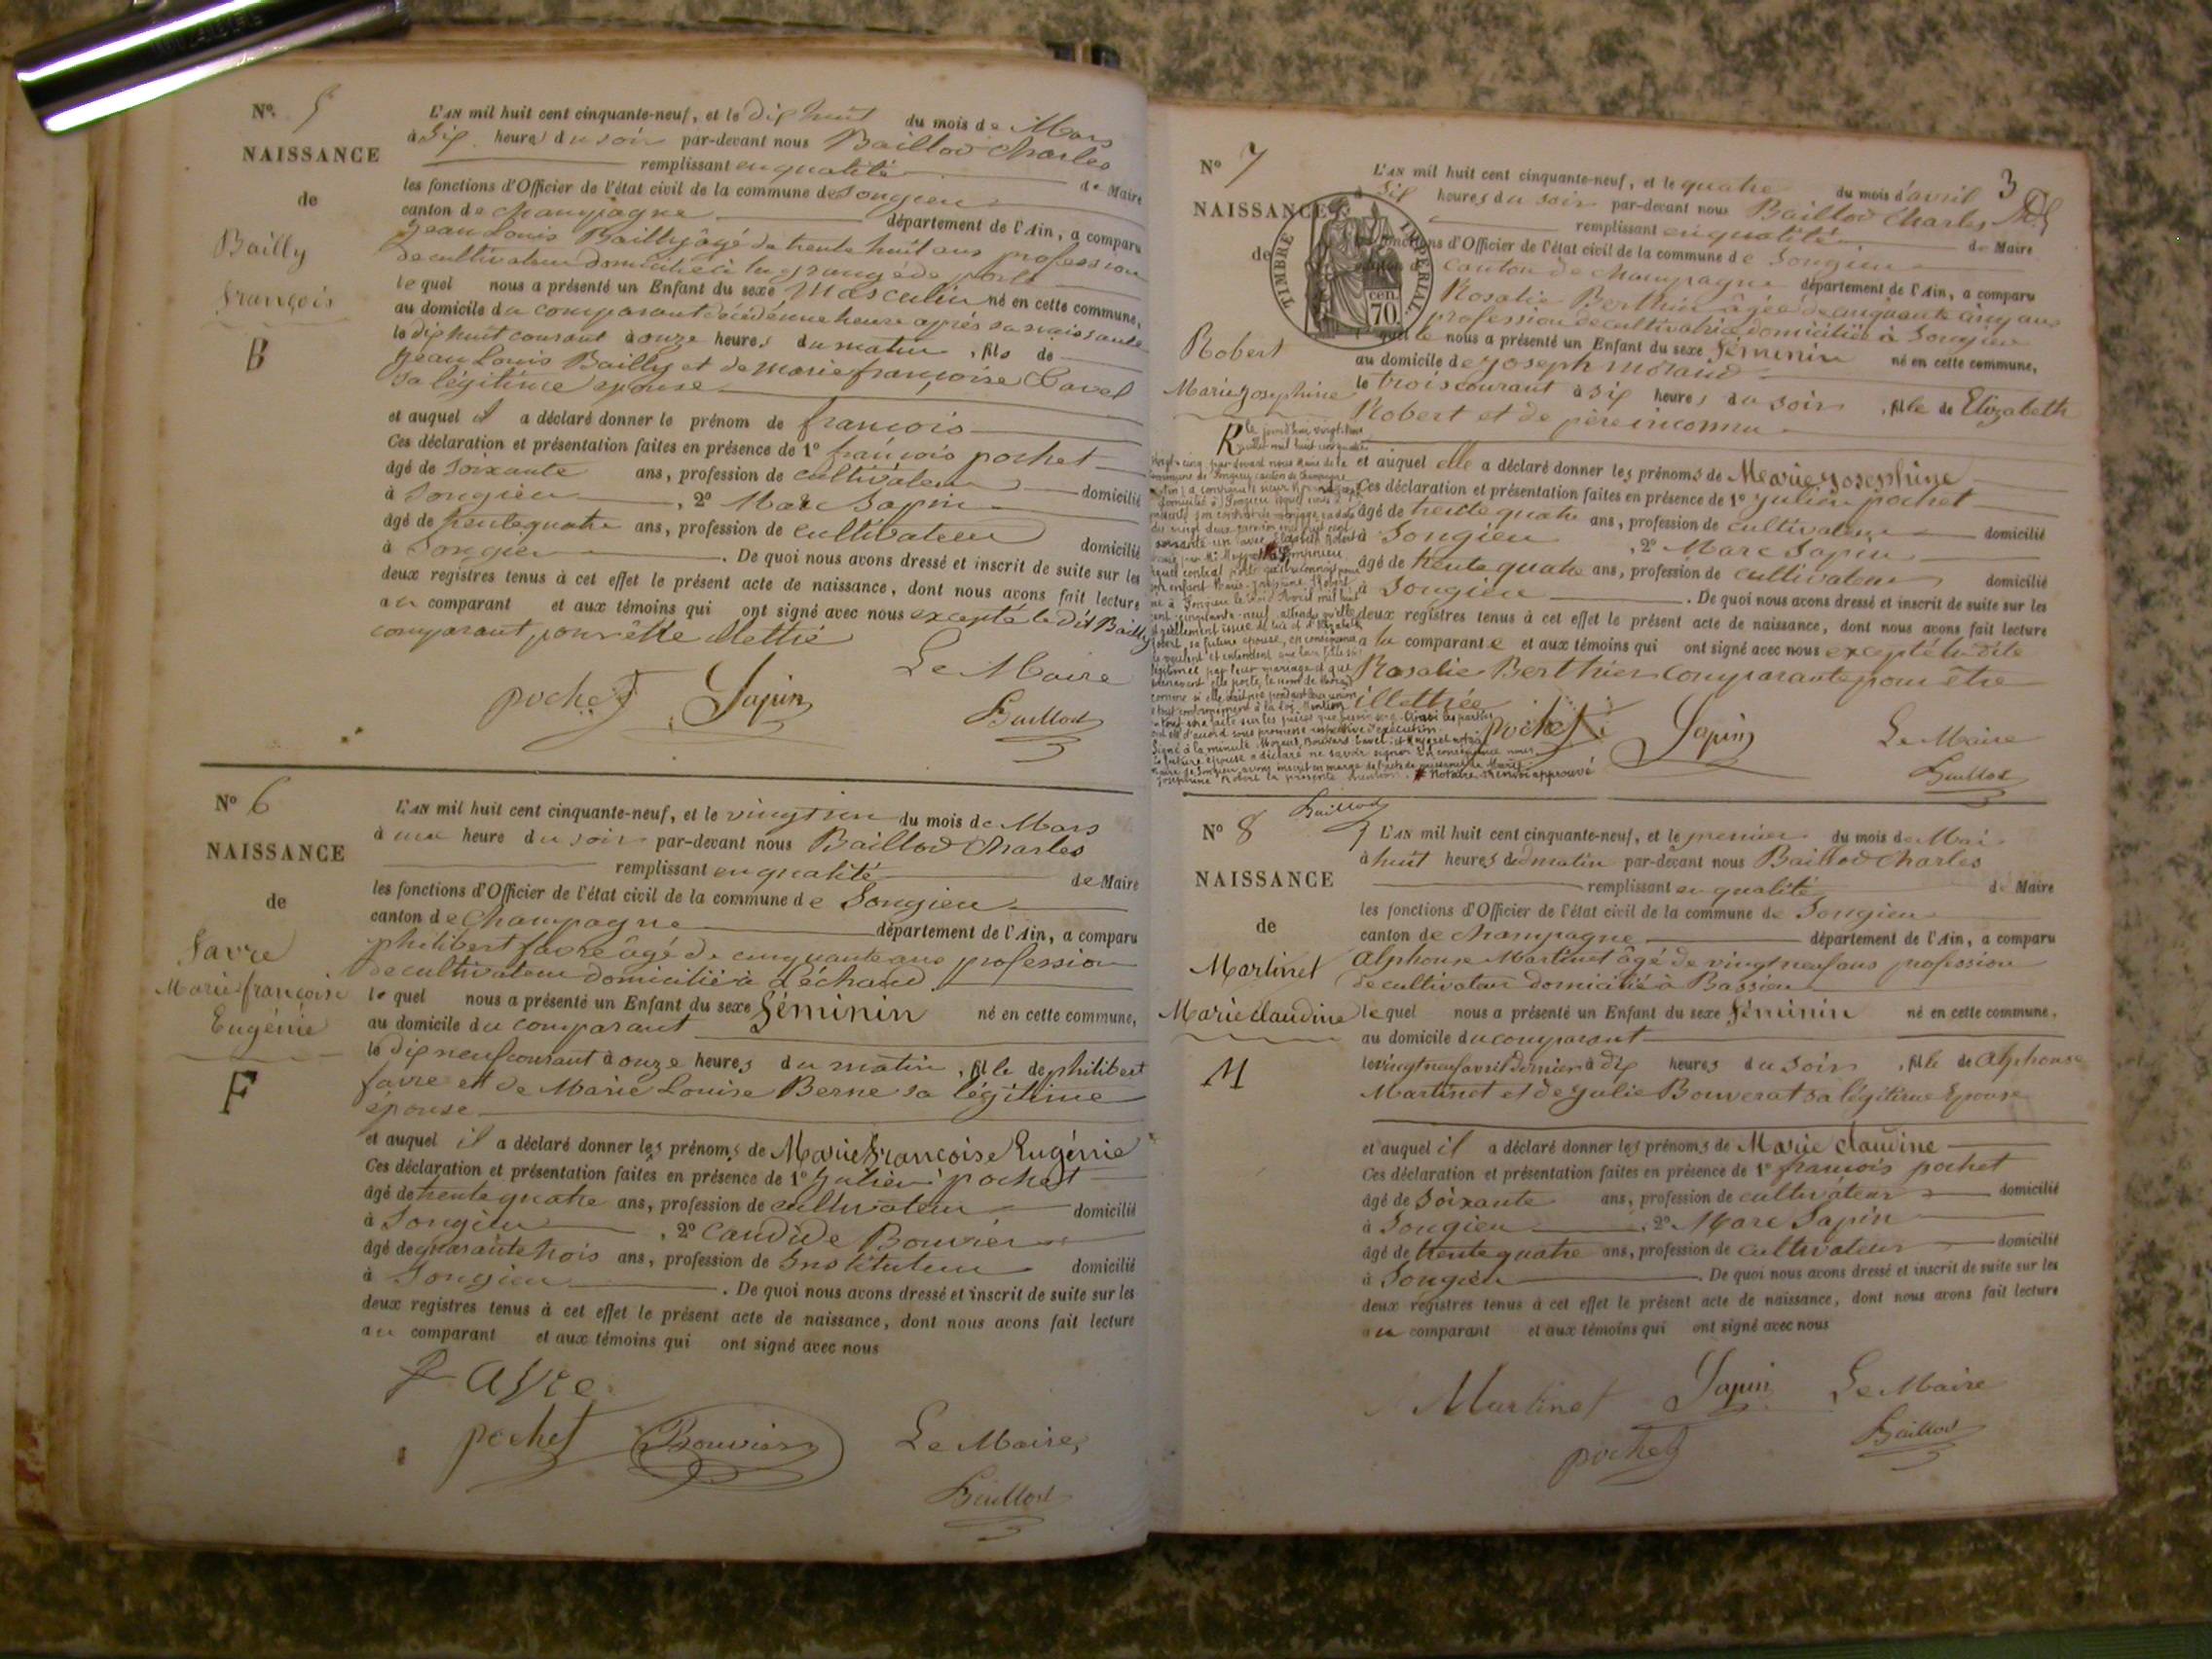 Nº. 5
NAISSANCE
de
Bailly
françois
B
L'AN mil huit cent cinquante-neuf, et le dix huit du mois de Mars
à Six heures du soir par-devant nous Baillod Charles
remplissant en qualité de Maire
les fonctions d'Officier de l'état civil de la commune de Songieu
canton de champagne département de l'Ain, a comparu
jean Louis Bailly âgé de trente huit ans profession
de cultivateur domicilié à la
lequel nous a présenté un Enfant du sexe Masculin né en cette commune,
au domicile du comparant décédé une heure après sa naissance
le dix huit courant à onze heures du matin, fils de
jean Louis Bailly et de marie françoise Cavel
sa légitime epouse
et auquel il a déclaré donner le prénom de françois
Ces déclaration et présentation faites en présence de 1º françois pochet
âgé de Soixante ans, profession de cultivateur domicilié
à Songieu, 2º Marc Sapin
âgé de trente quatre ans, profession de cultivateur domicilié
à Songieu. De quoi nous avons dressé et inscrit de suite sur les
deux registres tenus à cet effet le présent acte de naissance, dont nous avons fait lecture
au comparant et aux témoins qui ont signé avec nous excepté le dit Bailly
comparant pour être illettré
Le Maire
pochet Sapin
Baillod
Nº 6
NAISSANCE
de
Favre
Marie françoise
Eugénie
F
L'AN mil huit cent cinquante-neuf, et le vingt un du mois de Mars
à une heure du soir par-devant nous Baillod Charles
remplissant en qualité de Maire
les fonctions d'Officier de l'état civil de la commune de Songieu
canton de Champagne département de l'Ain, a comparu
philibert favre âgé de cinquante ans profession
de cultivateur domicilié à Léchaud
lequel nous a présenté un Enfant du sexe féminin né en cette commune,
au domicile du comparant
le dix neuf courant à onze heures du matin, fille de philibert
favre et de Marie Louise Berne sa légitime
épouse
et auquel il a déclaré donner les prénoms de Marie françoise Eugénie
Ces déclaration et présentation faites en présence de 1º julien pochet
âgé de trente quatre ans, profession de cultivateur domicilié
à Songieu, 2º Candide Bouvier
âgé de quarante trois ans, profession de Instituteur domicilié
à Songieu. De quoi nous avons dressé et inscrit de suite sur les
deux registres tenus à cet effet le présent acte de naissance, dont nous avons fait lecture
au comparant et aux témoins qui ont signé avec nous
favre
pochet Bouvier Le Maire,
Baillod
3
Nº 7
NAISSANCE
de
Robert
Marie josephine
TIMBRE IMPÉRIAL
70 cen.
L'AN mil huit cent cinquante-neuf, et le quatre du mois d'avril
à Six heures du soir par-devant nous Baillod Charles
remplissant en qualité de Maire
les fonctions d'Officier de l'état civil de la commune de Songieu
canton de champagne département de l'Ain, a comparu
Rosalie Berthier âgée de cinquante cinq ans
profession de cultivatrice domiciliée à Songieu
laquelle nous a présenté un Enfant du sexe féminin né en cette commune,
au domicile de joseph morand
le trois courant à Six heures du soir, fille de Elizabeth
Robert et de père inconnu
et auquel elle a déclaré donner les prénoms de Marie josephine
Ces déclaration et présentation faites en présence de 1º julien pochet
âgé de trente quatre ans, profession de cultivateur domicilié
à Songieu, 2º Marc Sapin
âgé de trente quatre ans, profession de cultivateur domicilié
à Songieu. De quoi nous avons dressé et inscrit de suite sur les
deux registres tenus à cet effet le présent acte de naissance, dont nous avons fait lecture
à la comparante et aux témoins qui ont signé avec nous excepté la dite
Rosalie Berthier comparante pour être
illettrée
pochet Sapin Le Maire
Baillod
Baillod
Nº 8
NAISSANCE
de
Martinet
Marie claudine
M
L'AN mil huit cent cinquante-neuf, et le premier du mois de Mai
à huit heures du matin par-devant nous Baillod Charles
remplissant en qualité de Maire
les fonctions d'Officier de l'état civil de la commune de Songieu
canton de champagne département de l'Ain, a comparu
Alphonse Martinet âgé de vingt neuf ans profession
de cultivateur domicilié à Bassieu
lequel nous a présenté un Enfant du sexe féminin né en cette commune.
au domicile du comparant
le vingt neuf avril dernier à dix heures du soir, fille de Alphonse
Martinet et de julie Bouverat sa légitime Epouse
et auquel il a déclaré donner les prénoms de Marie claudine
Ces déclaration et présentation faites en présence de 1º françois pochet
âgé de Soixante ans, profession de cultivateur domicilié
à Songieu, 2º Marc Sapin
âgé de trente quatre ans, profession de cultivateur domicilié
à Songieu. De quoi nous avons dressé et inscrit de suite sur les
deux registres tenus à cet effet le présent acte de naissance, dont nous avons fait lecture
au comparant et aux témoins qui ont signé avec nous
Martinet Sapin Le Maire
pochet Baillod